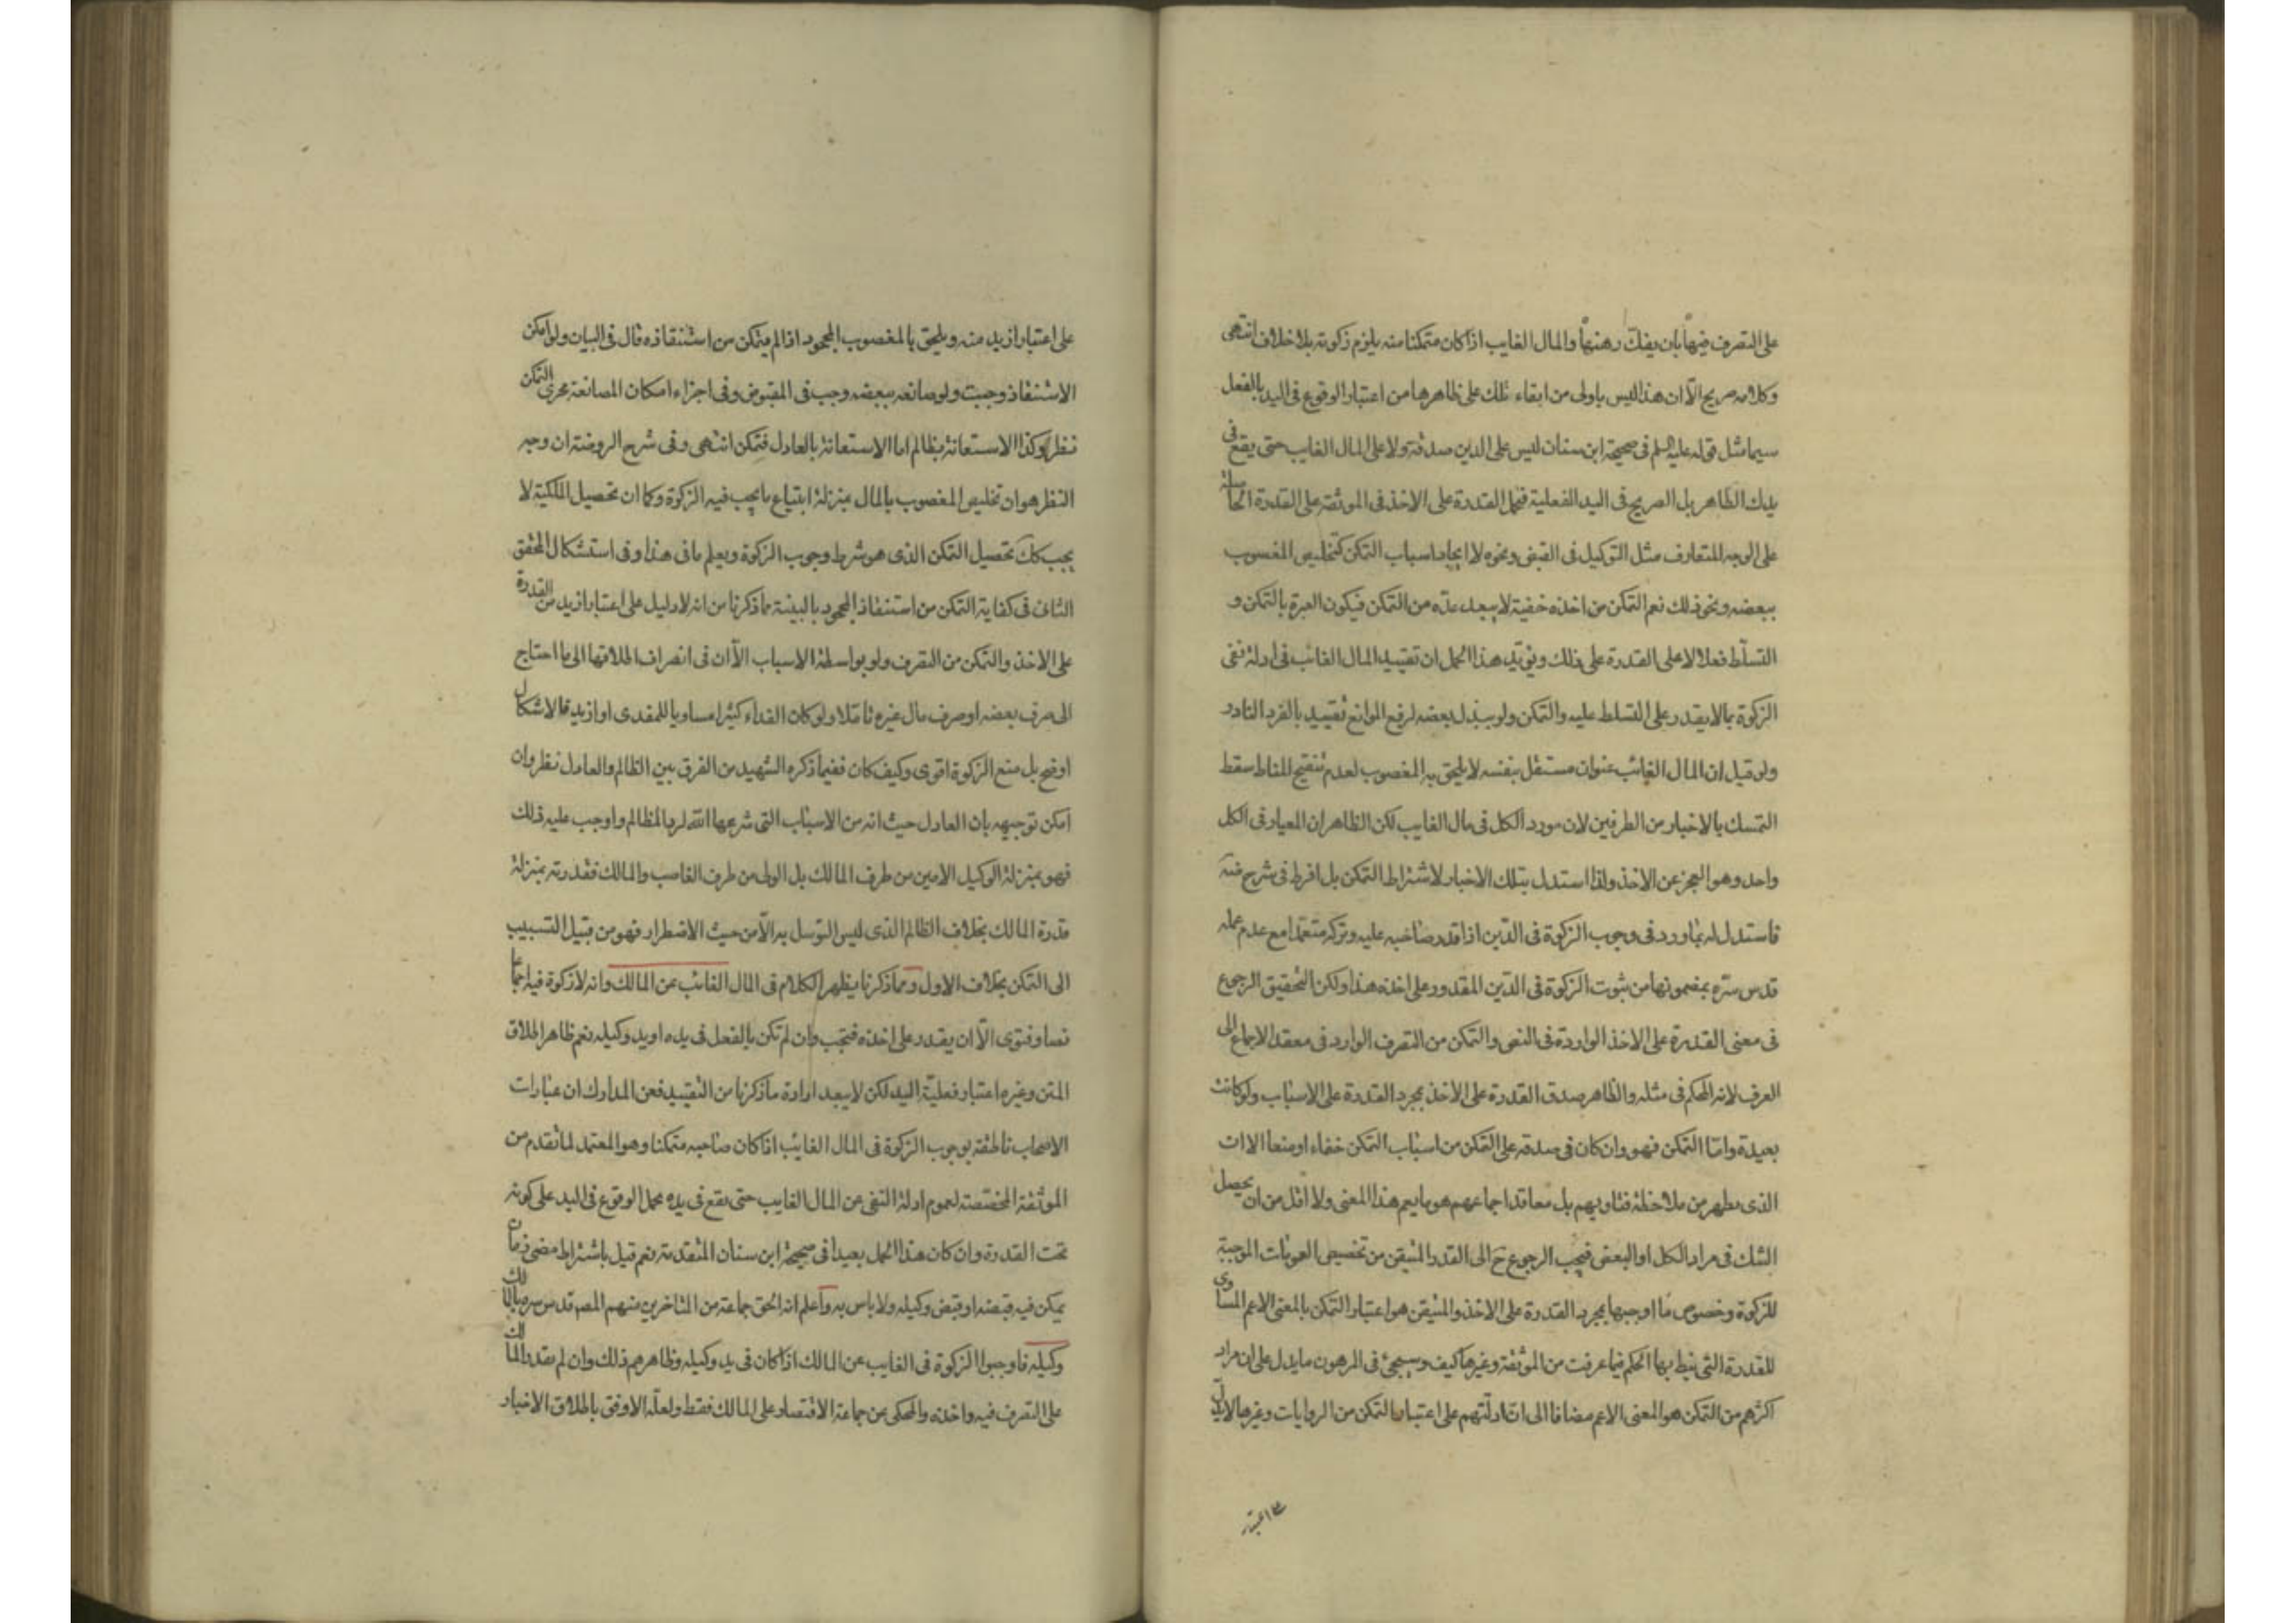 على التصرف فيها بان يفك رهنها والمال الغايب اذا كان متمكنا منه يلزم زكوته بلا خلاف انتهى
وكلامه صريح الّا ان هذا ليس باولى من ابقاء تلك على ظاهرها من اعتبار الوقوع فى اليد بالفعل
سيما مثل قوله عليه السلم فى صحيحة ابن سنان ليس على الدين صدقة ولا على المال الغايب حتى يقع فى
يديك الظاهر بل الصريح فى اليد الفعلية فيحمل القدرة على الاخذ فى الموثقة على القدرة الحاصلة
على الوجه المتعارف مثل التوكيل فى القبض ونحوه لا ايجاد اسباب التمكن كتخليص المغصوب
ببعضه ونحو ذلك نعم التمكن من اخذه خفية لا يبعد عدّه من التمكن فيكون العبرة بالتمكن و
التسلّط فعلا لا على القدرة على ذلك ويؤيّد هذا الحمل ان تقييد المال الغائب فى ادلة نفى
الزكوة بما لا يقدر على التسلط عليه والتمكن ولو ببذل بعضه لرفع الموانع تقييد بالفرد النادر
ولو قيل ان المال الغائب عنوان مستقل بنفسه لا يلحق به المغصوب لعدم تنقيح المناط سقط
التمسك بالاخبار من الطرفين لان مورد الكل فى مال الغايب لكن الظاهر ان المعيار فى الكل
واحد وهو العجز عن الاخذ ولذا استدل بتلك الاخبار لاشتراط التمكن بل افرط فى شرح
فاستدل له بما ورد فى وجوب الزكوة فى الدّين اذا قدر صاحبه عليه وتركه متعمّدا مع عدم عمله
قدس سّره بمضمونها من ثبوت الزكوة فى الدّين المقدور على اخذه هذا ولكن التحقيق الرجوع
فى معنى القدرة على الاخذ الواردة فى النص والتمكن من التصرف الوارد فى معقد الاجماع الى
العرف لانه المحكم فى مثله والظاهر صدق القدرة على الاخذ بمجرد القدرة على الاسباب ولو كانت
بعيدة وامّا التمكن فهو وان كان فى صدقه على التمكن من اسباب التمكن خفاء او منعا الا ان
الذى يظهر من ملاحظة فتاويهم بل معاقد اجماعهم هو ما يعم هذا المعنى ولا اقل من ان يحصل
الشك فى مراد الكل او البعض فيجب الرجوع ح الى القدر المتيقن من تخصيص العمومات الموجبة
للزكوة وخصوص ما اوجبها بمجرد القدرة على الاخذ والمتيقن هو اعتبار التمكن بالمعنى الاعم المساوى
للقدرة التى نيط بها الحكم فيما عرفت من الموثقة وغيرها كيف وسيجئ فى المرهون ما يدل على ان مراد
اكثرهم من التمكن هو المعنى الاعم مضافا الى ان ادلّتهم على اعتبار التمكن من الروايات وغيرها لا يدلّ
على اعتبار ازيد منه ويلحق بالمغصوب المجحود اذا لم يتمكن من استنقاذه قال فى البيان ولو امكن
الاستنقاذ وجبت ولو صانعه ببعضه وجب فى المقبوض وفى اجزاء امكان المصانعة مجرى التمكن
نظر وكذا الاستعانة بظالم اما الاستعانة بالعادل فتمكن انتهى وفى شرح الروضة ان وجه
النظر هو ان تخليص المغصوب بالمال بمنزلة ابتياع ما يجب فيه الزكوة وكما ان تحصيل الملكية لا
يجب كك تحصيل التمكن الذى هو شرط وجوب الزكوة ويعلم ما فى هذا وفى استشكال المحقق
الثانى فى كفاية التمكن من استنقاذ المجحود بالبينة مما ذكرنا من انه لا دليل على اعتبار ازيد من القدرة
على الاخذ والتمكن من التصرف ولو بواسطة الاسباب الّا ان فى انصراف اطلاقها الى ما احتاج
الى صرف بعضه او صرف مال غيره تاملا ولو كان الفداء كثيرا مساويا للمفدى او ازيد فالاشكال
اوضح بل منع الزكوة اقوى وكيف كان ففيما ذكره الشهيد من الفرق بين الظالم والعادل نظر وان
امكن توجيهه بان العادل حيث انه من الاسباب التى شرعها الله لرد المظالم واوجب عليه ذلك
فهو بمنزلة الوكيل الامين من طرف المالك بل الولى من طرف الغاصب والمالك فقدرته بمنزلة
قدرة المالك بخلاف الظالم الذى ليس التوسل به الّا من حيث الاضطرار فهو من قبيل التسبيب
الى التمكن بخلاف الاول ومما ذكرنا يظهر الكلام فى المال الغائب عن المالك وانه لا زكوة فيه اجماعا
نصا وفتوى الّا ان يقدر على اخذه فتجب وان لم تكن بالفعل فى يده او يد وكيله نعم ظاهر اطلاق
المتن وغيره اعتبار فعليّة اليد لكن لا يبعد ارادة ما ذكرنا من التقييد فعن المدارك ان عبارات
الاصحاب ناطقة بوجوب الزكوة فى المال الغايب اذا كان صاحبه متمكنا وهو المعتمد لما تقدم من
الموثقة المخصّصة لعموم ادلة النفى عن المال الغايب حتى يقع فى يده بحمل الوقوع فى اليد على كونه
تحت القدرة وان كان هذا الحمل بعيدا فى صحيحة ابن سنان المتقدمة نعم قيل باشتراط مضى زمان
يمكن فيه قبضه او قبض وكيله ولا باس به واعلم انه الحق جماعة من المتاخرين منهم المصـ قدس سره بالمالك
وكيله فاوجبوا الزكوة فى الغايب عن المالك اذا كان فى يد وكيله وظاهرهم ذلك وان لم يقدر المالك
على التصرف فيه واخذه والمحكى عن جماعة الاقتصار على المالك فقط ولعلّه الاوفق باطلاق الاخبار